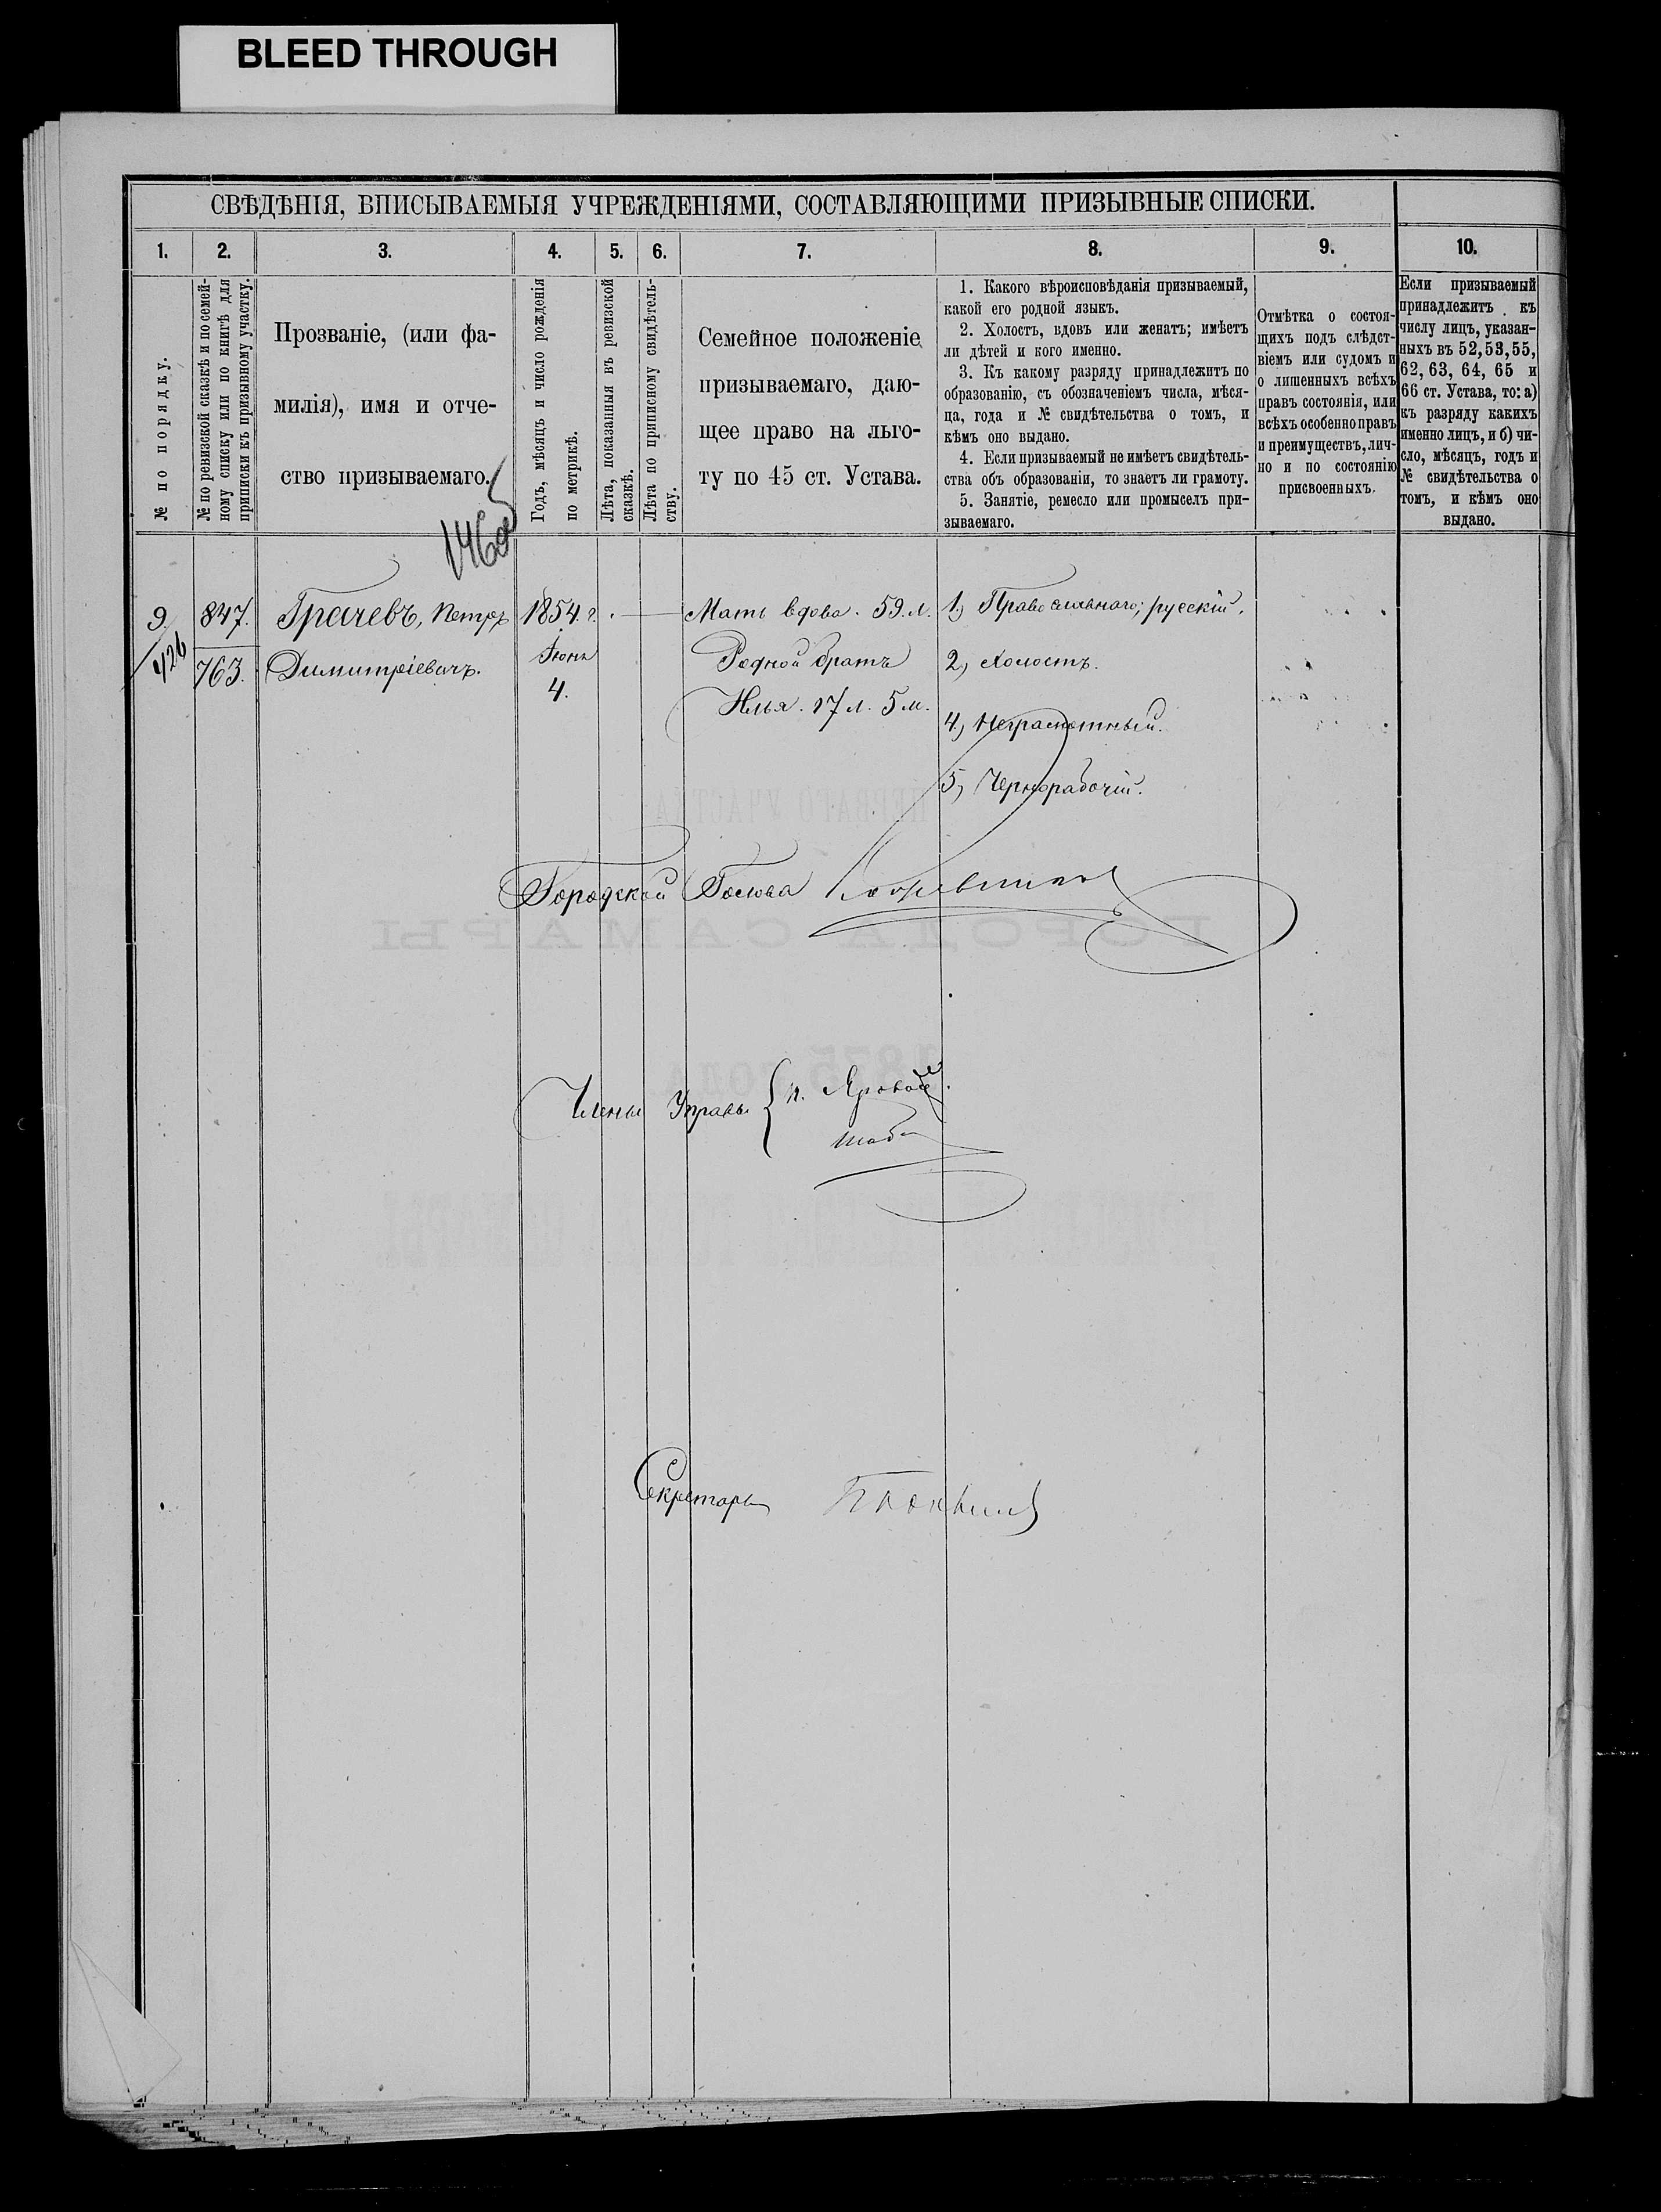 BLEED THROUGH
СВѢДѢНІЯ, ВПИСЫВАЕМЫЯ УЧРЕЖДЕНІЯМИ, СОСТАВЛЯЮЩИМИ ПРИЗЫВНЫЕ СПИСКИ.
1. 2. 3. 4. 5. 6. 7. 8. 9. 10.
№ по порядку.
№ по ревизской сказкѣ и по семей-
ному списку или по книгѣ для
приписки къ призывному участку.
Прозваніе, (или фа-
милія), имя и отче-
ство призываемаго.
Годъ, мѣсяцъ и число рожденія
по метрикѣ.
Лѣта, показанныя въ ревизской
сказкѣ.
Лѣта по приписному свидѣтель-
ству.
Семейное положеніе
призываемаго, даю-
щее право на льго-
ту по 45 ст. Устава.
1. Какого вѣроисповѣданія призываемый,
какой его родной языкъ.
2. Холостъ, вдовъ или женатъ; имѣетъ
ли дѣтей и кого именно.
3. Къ какому разряду принадлежитъ по
образованію, съ обозначеніемъ числа, мѣся-
ца, года и № свидѣтельства о томъ, и
кѣмъ оно выдано.
4. Если призываемый не имѣетъ свидѣтель-
ства объ образованіи, то знаетъ ли грамоту.
5. Занятіе, ремесло или промыселъ при-
зываемаго.
Отмѣтка о состоя-
щихъ подъ слѣдст-
віемъ или судомъ и
о лишенныхъ всѣхъ
правъ состоянія, или
всѣхъ особенно правъ
и преимуществъ, лич-
но и по состоянію
присвоенныхъ.
Если призываемый
принадлежитъ къ
числу лицъ, указан-
ныхъ въ 52, 53, 55,
62, 63, 64, 65 и
66 ст. Устава, то: а)
къ разряду какихъ
именно лицъ, и б) чи-
сло, мѣсяцъ, годъ и
№ свидѣтельства о
томъ, и кѣмъ оно
выдано.
146об
9.
426
847.
763.
Грачевъ, Петръ
Димитріевичъ.
1854. г.
Іюня
4.
Мать вдова. 59. л.
Родной братъ
Илья. 17 л. 5 м.
1.) Православнаго; русскій.
2.) Холостъ.
4.) Неграмотный.
5.) Чернорабочій.
ПЕРВАГО УЧАСТКА
Городской Голова
ГОРОДА САМАРЫ
1875 ГОДА
Члены Управы
Секретарь